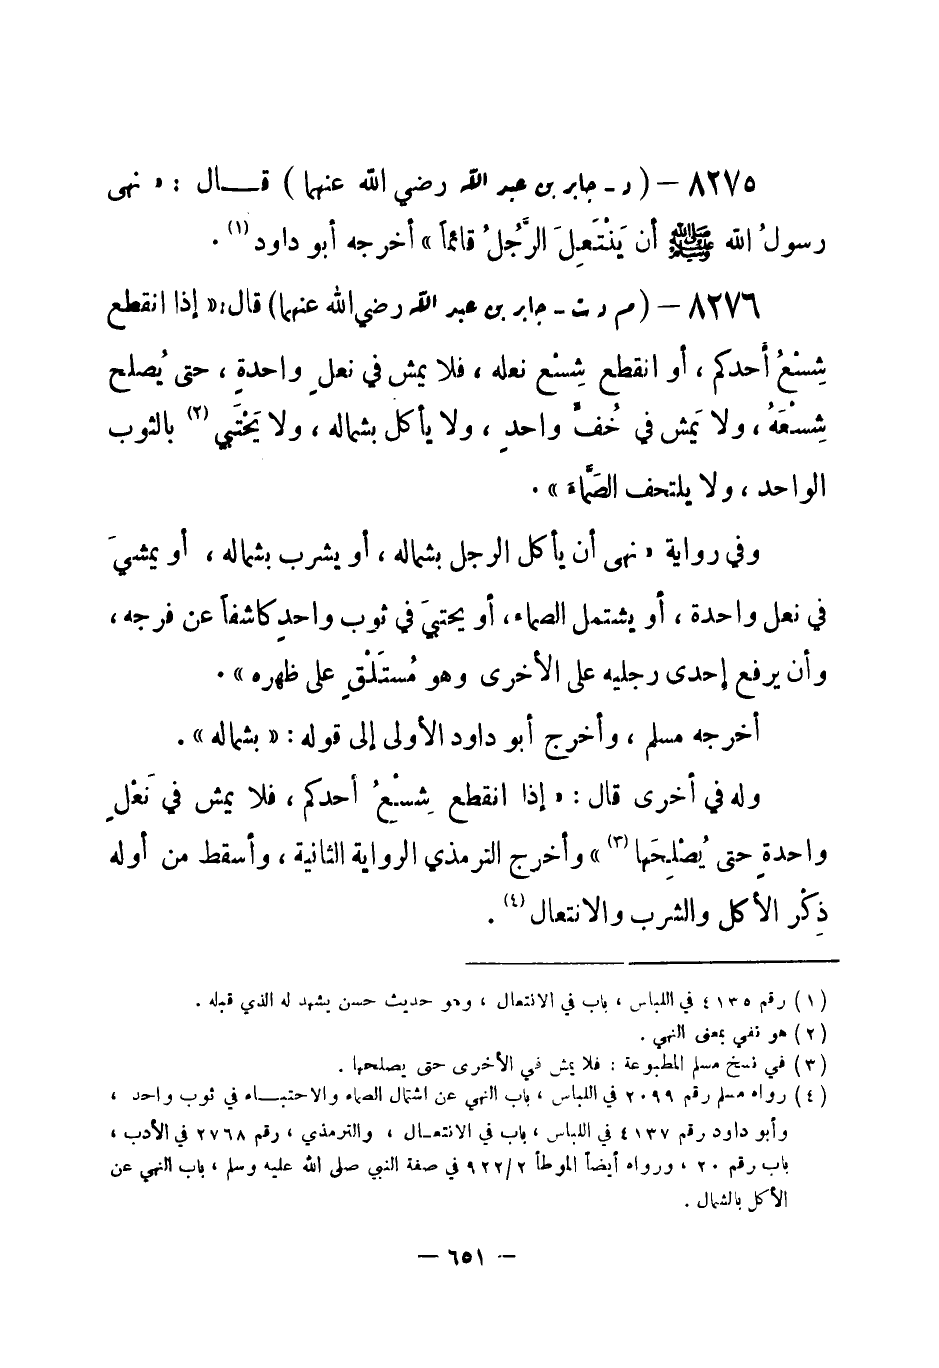 ٨٢٧٥ – ( د - جابر بن عبد الله رضي الله عنهما ) قـــال : « نهى
رسولُ الله ﷺ أن يَنْتَعِلَ الرَّجُلُ قائماً » أخرجه أبو داود (١) .
٨٢٧٦ – ( م د ت - جابر بن عبد الله رضي الله عنهما) قال: « إذا انقطع
شِسْعُ أحدكم ، أو انقطع شِسْع نعله ، فلا يمش في نعلٍ واحدةٍ ، حتى يُصلح
شِسْعَهُ ، ولا يَمش في خُفٍّ واحدٍ ، ولا يأكل بشماله ، ولا يَحْتَبي (٢) بالثوب
الواحد ، ولا يلتحف الصَّمَّاءَ » .
وفي رواية « نهى أن يأكل الرجل بشماله ، أو يشرب بشماله ، أو يمشيَ
في نعل واحدة ، أو يشتمل الصماء، أو يحتبيَ في ثوب واحدٍ كاشفاً عن فرجه ،
وأن يرفع إحدى رجليه على الأخرى وهو مُستَلْقٍ على ظهره » .
أخرجه مسلم ، وأخرج أبو داود الأولى إلى قوله : « بشماله » .
وله في أخرى قال : « إذا انقطع شِسْعُ أحدكم ، فلا يمش في نَعْلٍ
واحدةٍ حتى يُصْلِحَها (٣) » وأخرج الترمذي الرواية الثانية ، وأسقط من أوله
ذِكْر الأكل والشرب والانتعال (٤) .
(١) رقم ٤١٣٥ في اللباس ، باب في الانتعال ، وهو حديث حسن يشهد له الذي قبله .
(٢) هو نفي بمعنى النهي .
(٣) في نسخ مسلم المطبوعة : فلا يمش في الأخرى حتى يصلحها .
(٤) رواه مسلم رقم ٢٠٩٩ في اللباس ، باب النهي عن اشتمال الصماء والاحتبـــاء في ثوب واحد ،
وأبو داود رقم ٤١٣٧ في اللباس ، باب في الانتعـال ، والترمذي ، رقم ٢٧٦٨ في الأدب ،
باب رقم ٢٠ ، ورواه أيضاً الموطأ ٩٢٢/٢ في صفة النبي صلى الله عليه وسلم ، باب النهي عن
الأكل بالشمال .
– ٦٥١ –